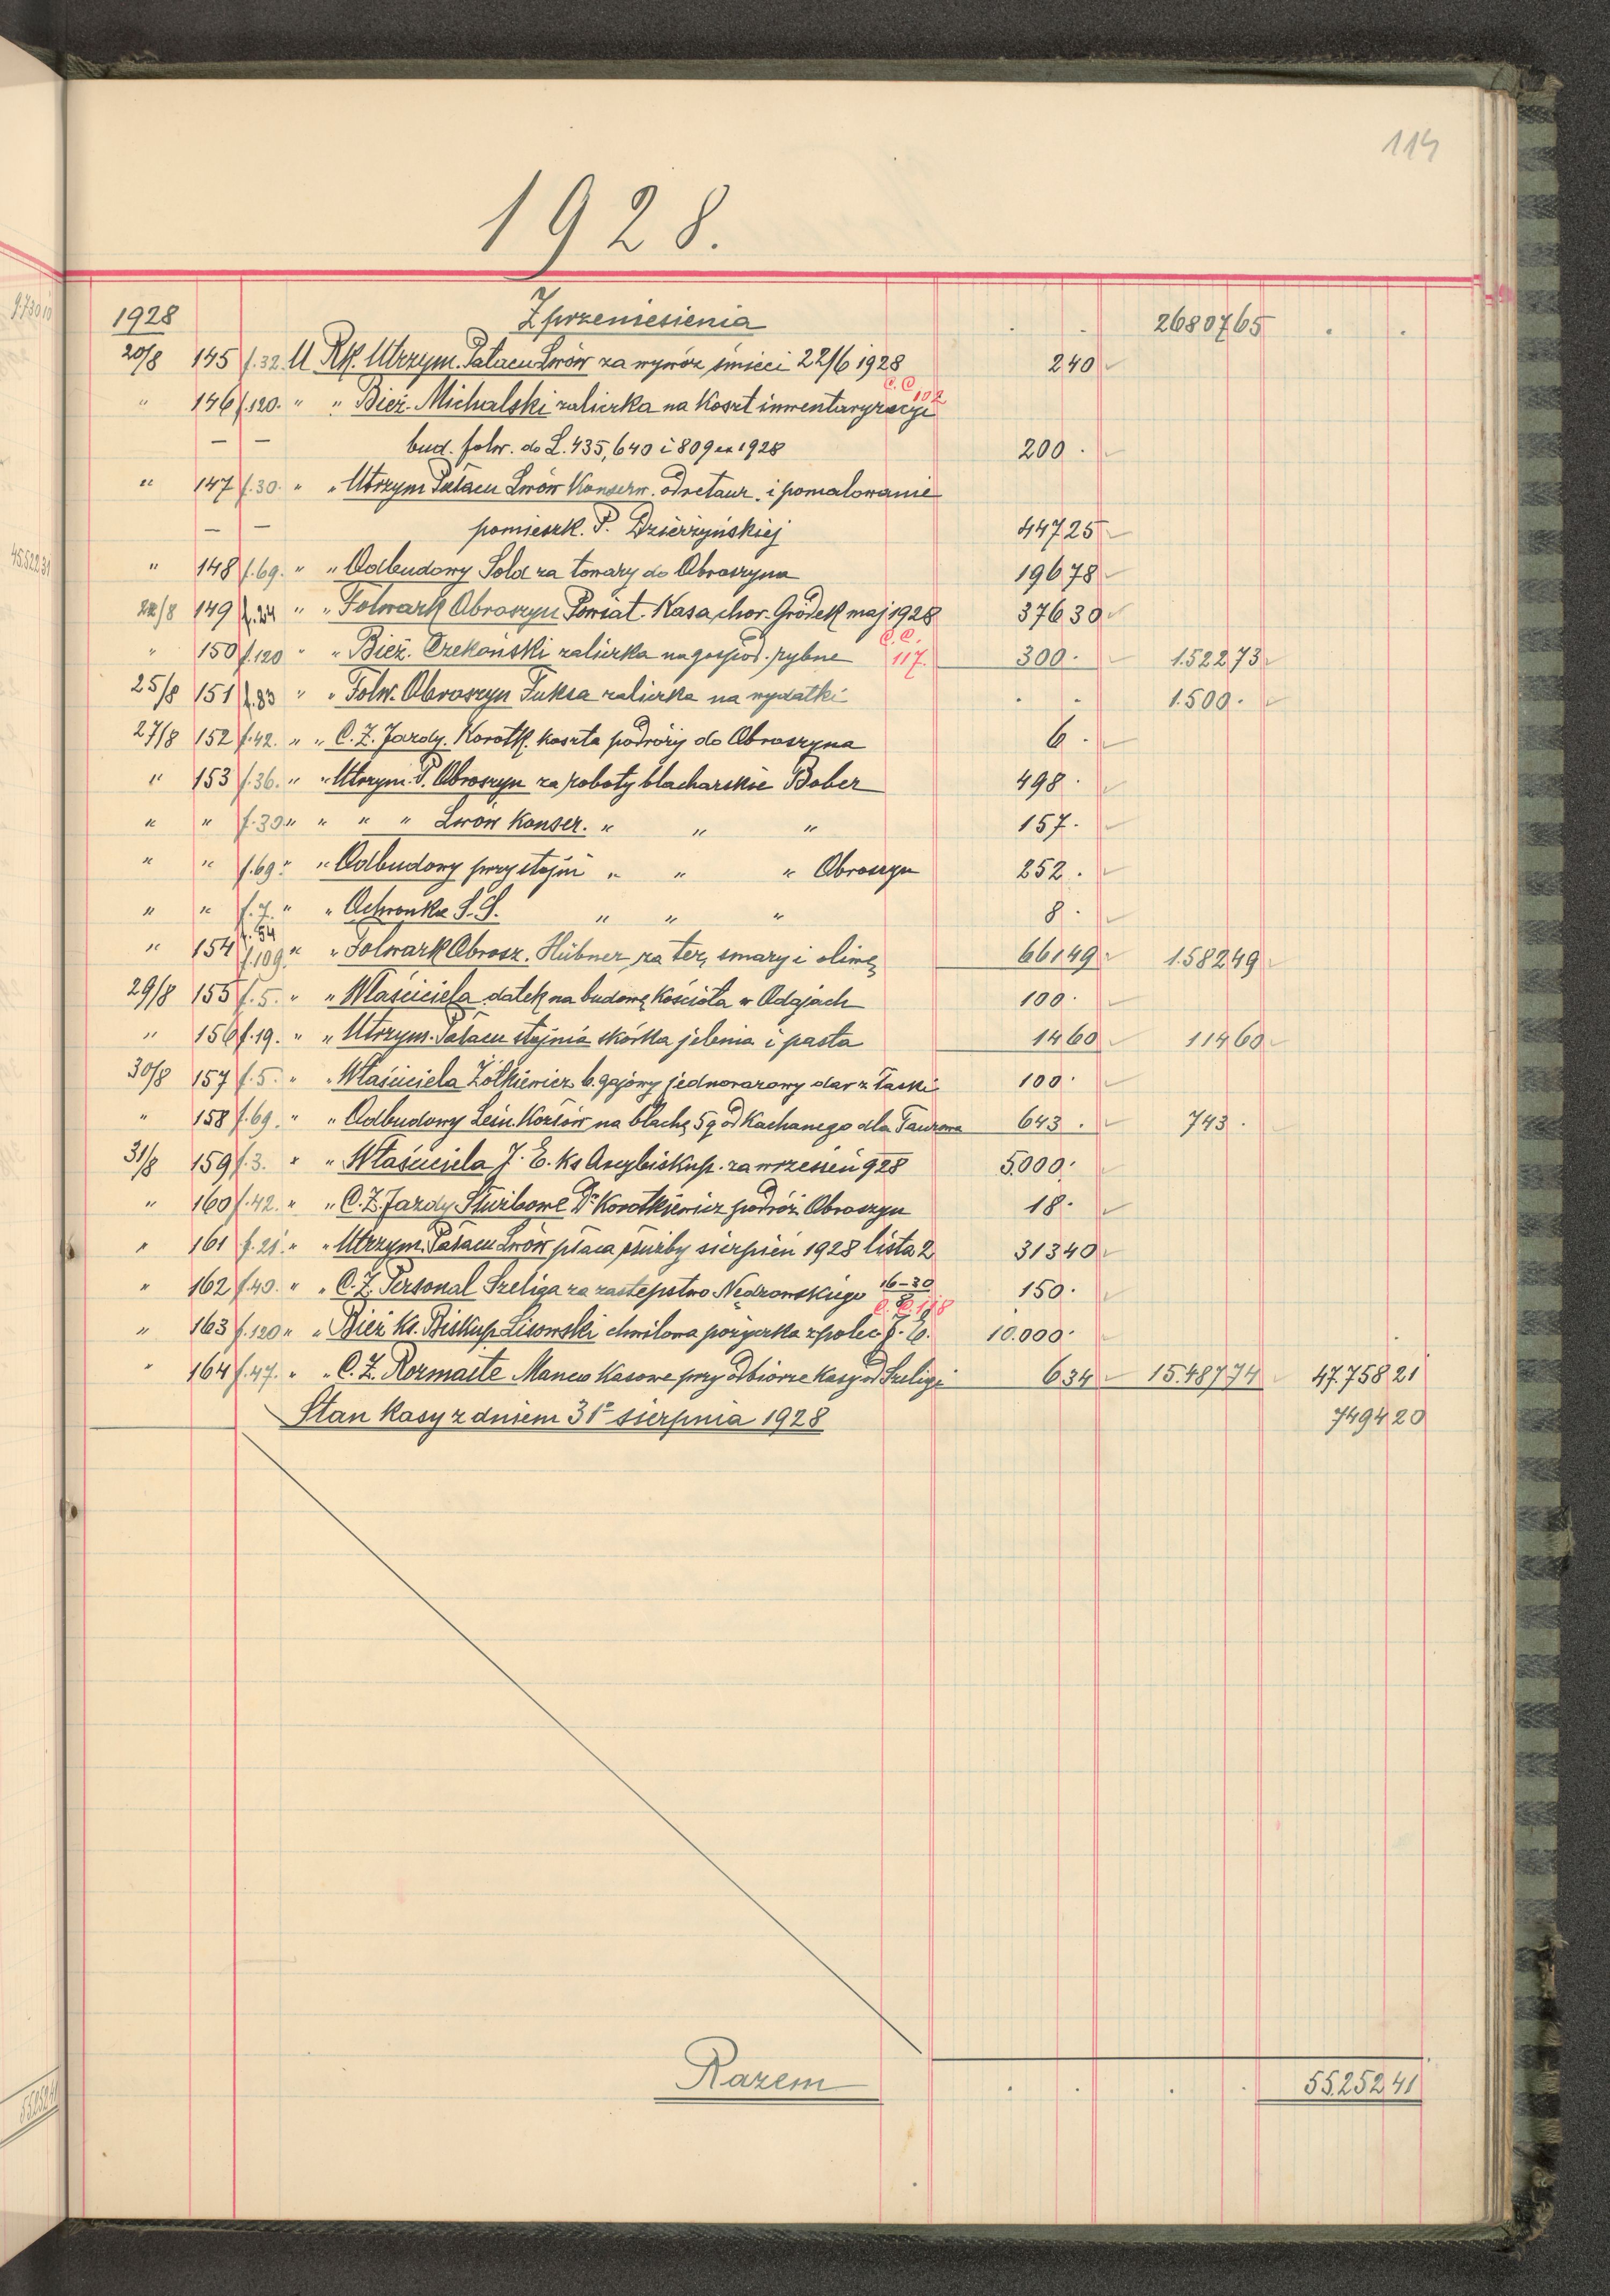 114
1928.
1928 Z przeniesienia . . 26807 65 . .
20/8 145 f.32. U Rk. Utrzym. Pałacu Lwów za wywóz śmieci 22/6 1928 2 40
" 146 f.120. " " Bież. Michalski zaliczka na koszt inwentaryzacyi C.C. 102
— — bud. folw. do L. 435, 640 i 809 ex 1928 200 .
" 147 f.30. " " Utrzym Pałacu Lwów Konserw. odretaur. i pomalowanie
— — pomieszk. P. Dzierżyńskiej 447 25
" 148 f.69. " " Odbudowy Sold za towary do Obroszyna 196 78
22/8 149 f.24 " " Folwark Obroszyn Powiat. Kasa chor. Gródek maj 1928 376 30
" 150 f.120 " " Bież. Czekoński zaliczka na gospod. rybne C.C. 117. 300 . 1.522 73
25/8 151 f.83 " " Folw. Obroszyn Fuksa zaliczka na wydatki . . 1.500 .
27/8 152 f.42. " " C.Z. Jazdy. Korotk. koszta podróży do Obroszyna 6 .
" 153 f.36. " " Utrzym. P. Obroszyn za roboty blacharskie Bober 498 .
" " f.30 " " " " Lwów Konser. " " " 157 .
" " f.69 " " Odbudowy przy stajni " " " Obroszyn 252 .
" " f.7. " " Ochronka S.S. " " " 8 .
" 154 f.54 f.109. " " Folwark Obrosz. Hübner za ter, smary i oliwę 661 49 1.582 49
29/8 155 f.5. " " Właściciela datek na budowę Kościoła w Odajach 100 .
" 156 f.19. " " Utrzym. Pałacu stajnia skórka jelenia i pasta 14 60 114 60
30/8 157 f.5. " " Właściciela Żółkiewicz b. gajowy jednorazowy dar z łaski 100 .
" 158 f.69. " " Odbudowy Leśn. Korśów na blachę 5 q od Kachanego dla Taurowa 643 . 743 .
31/8 159 f.3. " " Właściciela J. E. Ks Arcybiskup. za wrzesień 928 5.000 .
" 160 f.42. " " C.Z. Jazdy Służbowe Dr Korotkiewicz podróż Obroszyn 18 .
" 161 f.21. " " Utrzym. Pałacu Lwów płaca służby sierpień 1928 lista 2 313 40
" 162 f.40. " " C.Z. Personal Szeliga za zastępstwo Nędzowskiego 16–30/8 150 .
" 163 f.120 " " Bież Ks. Biskup Lisowski chwilowa pożyczka z polec. J. E. C.C. 118 10.000 .
" 164 f.47. " " C.Z. Rozmaite Manco Kasowe przy odbiorze Kasy od Szeligi 6 34 15.487 74 47.758 21
Stan Kasy z dniem 31o sierpnia 1928 7494 20
Razem . . . . 55.252 41